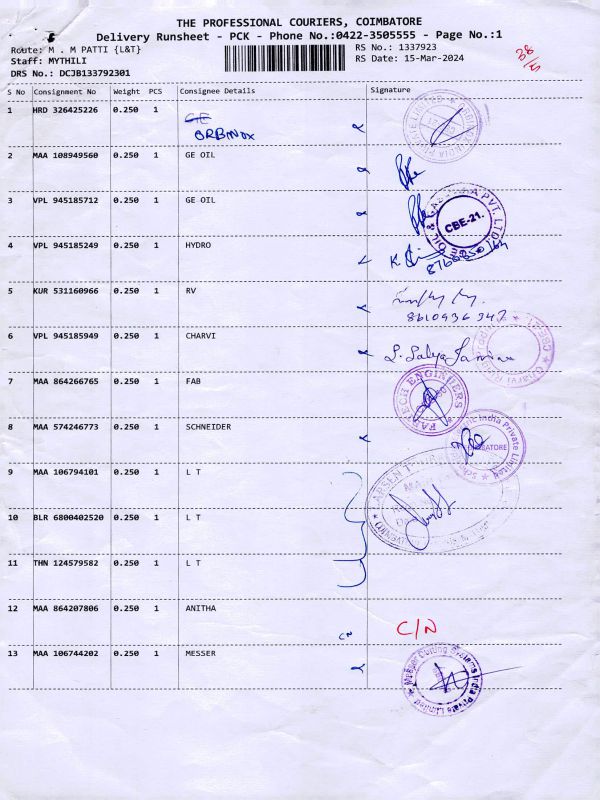 THE PROFESSIONAL COURIERS, COIMBATORE
Delivery Runsheet - PCK - Phone No.:0422-3505555 - Page No.:1
Route: M . M PATTI {L&T}
RS No.: 1337923
Staff: MYTHILI
RS Date: 15-Mar-2024
DRS No.: DCJB133792301
S No Consignment No Weight PCS Consignee Details Signature
1 HRD 326425226 0.250 1 GE
ORBINOX
2 MAA 108949560 0.250 1 GE OIL
3 VPL 945185712 0.250 1 GE OIL
CBE-21.
4 VPL 945185249 0.250 1 HYDRO
5 KUR 531160966 0.250 1 RV
8610936342
6 VPL 945185949 0.250 1 CHARVI
7 MAA 864266765 0.250 1 FAB
FABTECH ENGINEERS
8 MAA 574246773 0.250 1 SCHNEIDER
9 MAA 106794101 0.250 1 L T
10 BLR 6800402520 0.250 1 L T
11 THN 124579582 0.250 1 L T
12 MAA 864207806 0.250 1 ANITHA
CN C/N
13 MAA 106744202 0.250 1 MESSER
Messer Cutting Systems India Private Limited